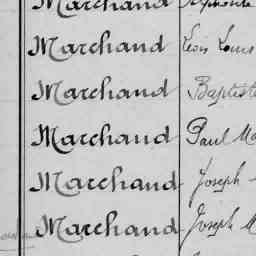 Marchand
Marchand Léon Louis
Marchand Baptiste
Marchand Paul
Marchand Joseph
Marchand Joseph M